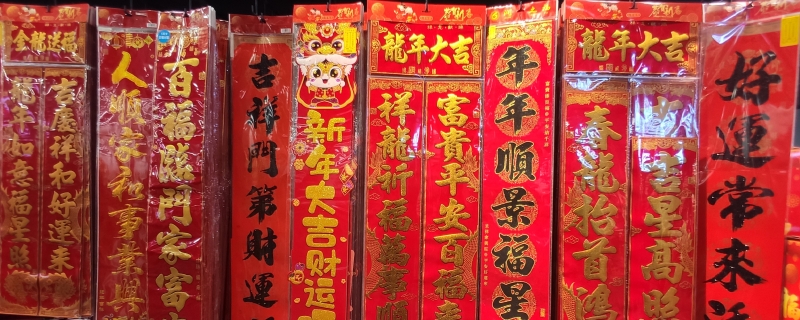 金龍送福
龍年如意福星照
吉慶祥和好運來
人順家和事業興
百福臨門家富
吉祥門第財運
新年大吉財运
龍年大吉
祥龍祈福萬事順
富貴平安百福來
年年順景福星
龍年大吉
春龍抬首鴻
吉星高照
好運常來